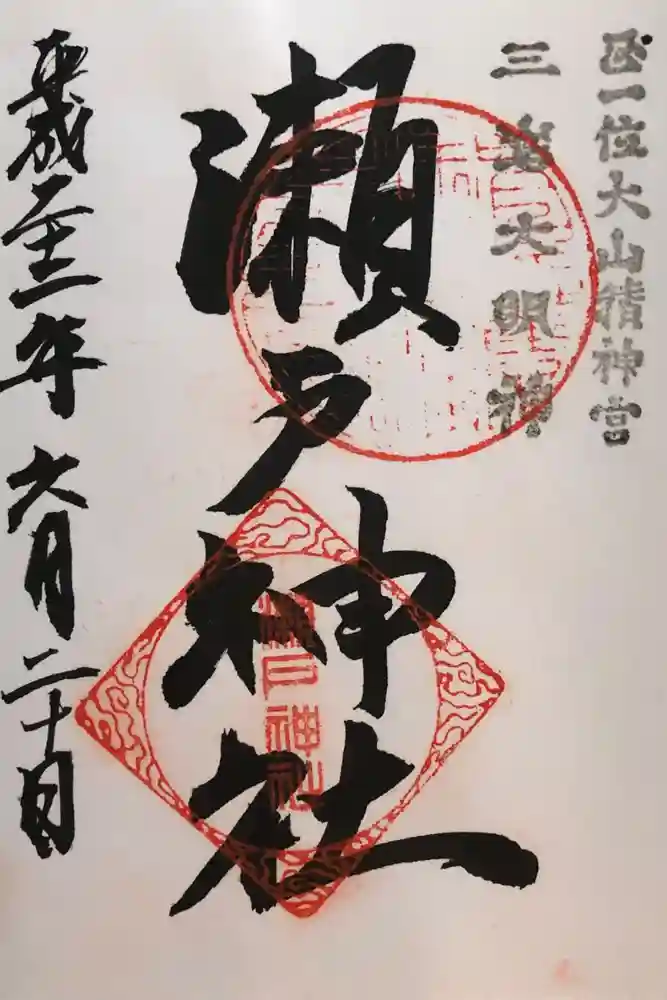 正一位大山積神宮
三島大明神
瀬戸神社
瀬戸神社
平成二十二年六月二十日